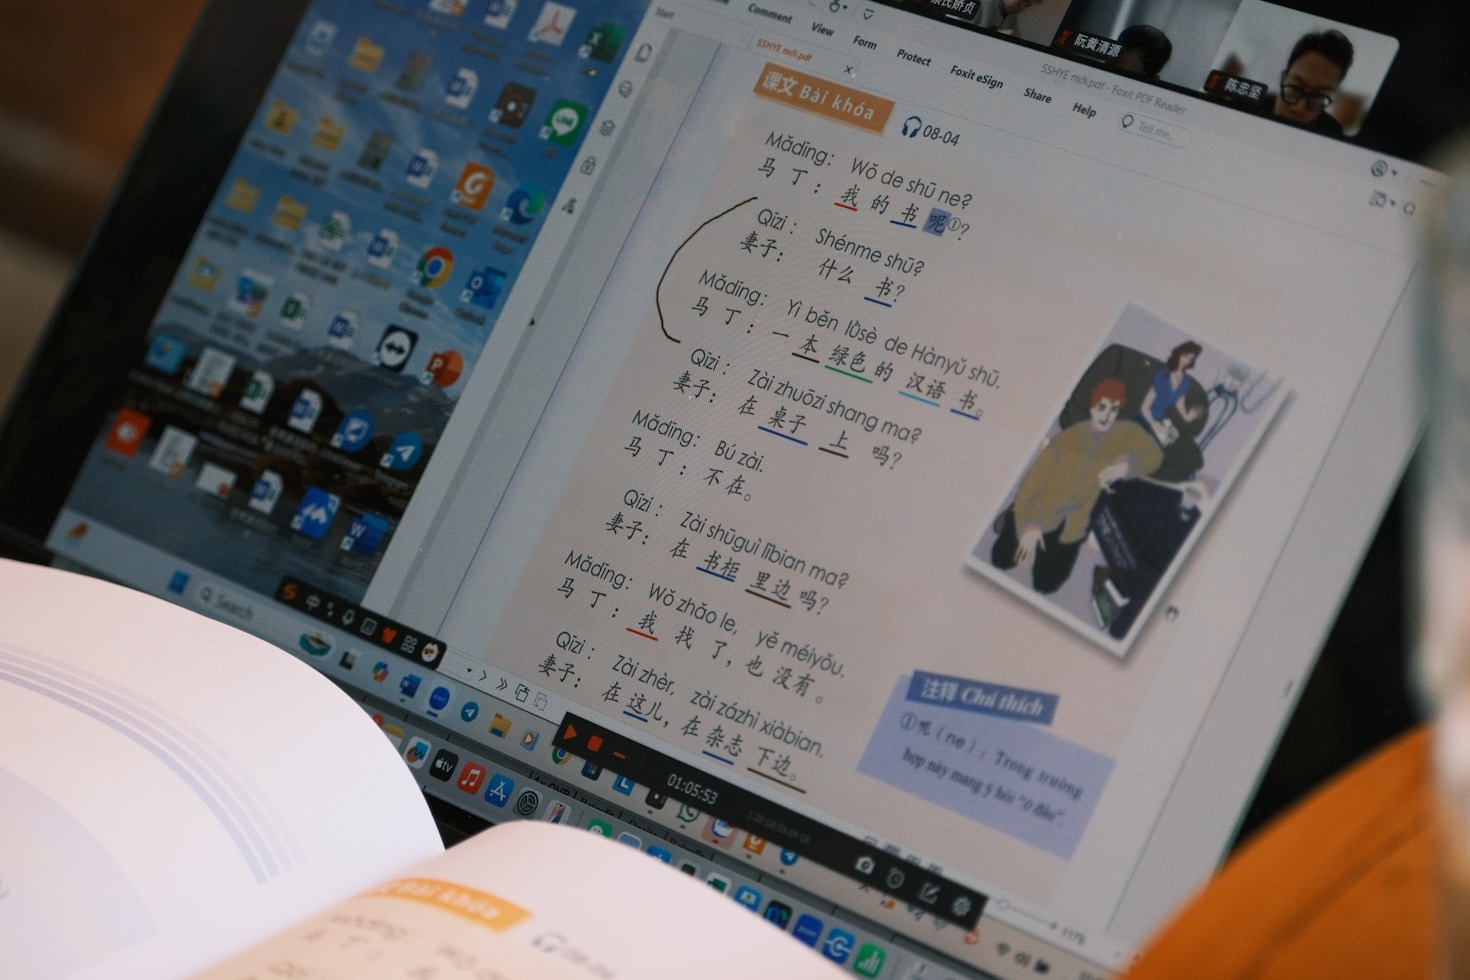 蔡氏娇贞
阮黄清源
陈忠坚
Start
Comment View Form Protect Foxit eSign Share Help
SSHYE mới.pdf - Foxit PDF Reader
Tell me...
SSHYE mới.pdf
课文 Bài khóa
08-04
Mǎdīng: Wǒ de shū ne?
马丁：我的书呢①?
Qīzi: Shénme shū?
妻子：什么书?
Mǎdīng: Yì běn lǜsè de Hànyǔ shū.
马丁：一本绿色的汉语书。
Qīzi: Zài zhuōzi shang ma?
妻子：在桌子上吗?
Mǎdīng: Bú zài.
马丁：不在。
Qīzi: Zài shūguì lǐbian ma?
妻子：在书柜里边吗?
Mǎdīng: Wǒ zhǎo le, yě méiyǒu.
马丁：我找了，也没有。
Qīzi: Zài zhèr, zài zázhì xiàbian.
妻子：在这儿，在杂志下边。
注释 Chú thích
①呢 (ne): Trong trường
hợp này mang ý hỏi "ở đâu".
Search
中
01:05:53
117%
tv
Bài khóa
08-04